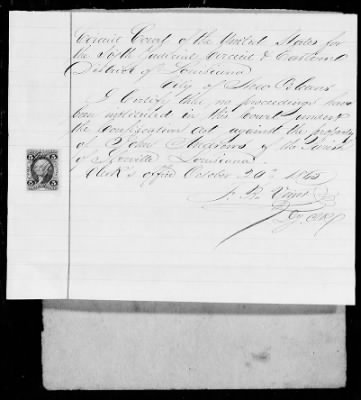 Circuit Court of the United States for
the Sixth Judicial Circuit & Eastern
District of Louisiana
City of New Orleans
I Certify that no proceedings have
been instituted in this Court under
the confiscation act against the property
of John Andrews of the Parish
of Iberville Louisiana.
Clerk's office October 20th 1865
Dy Clk
5 5